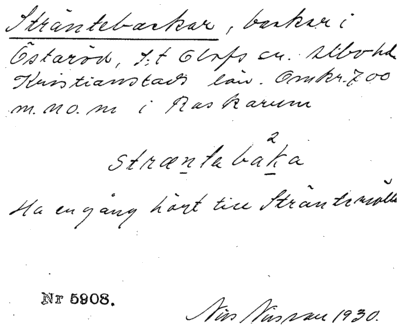 Sträntebackar, backar i
Östaröd, S:t Olofs sn. Albo hd
Kristianstads län. Omkr. 700
m. no. m i Raskarum
stræntabåka
2
Ha en gång hört till Sträntsmölla
Nr 5908.
Nils 1930.